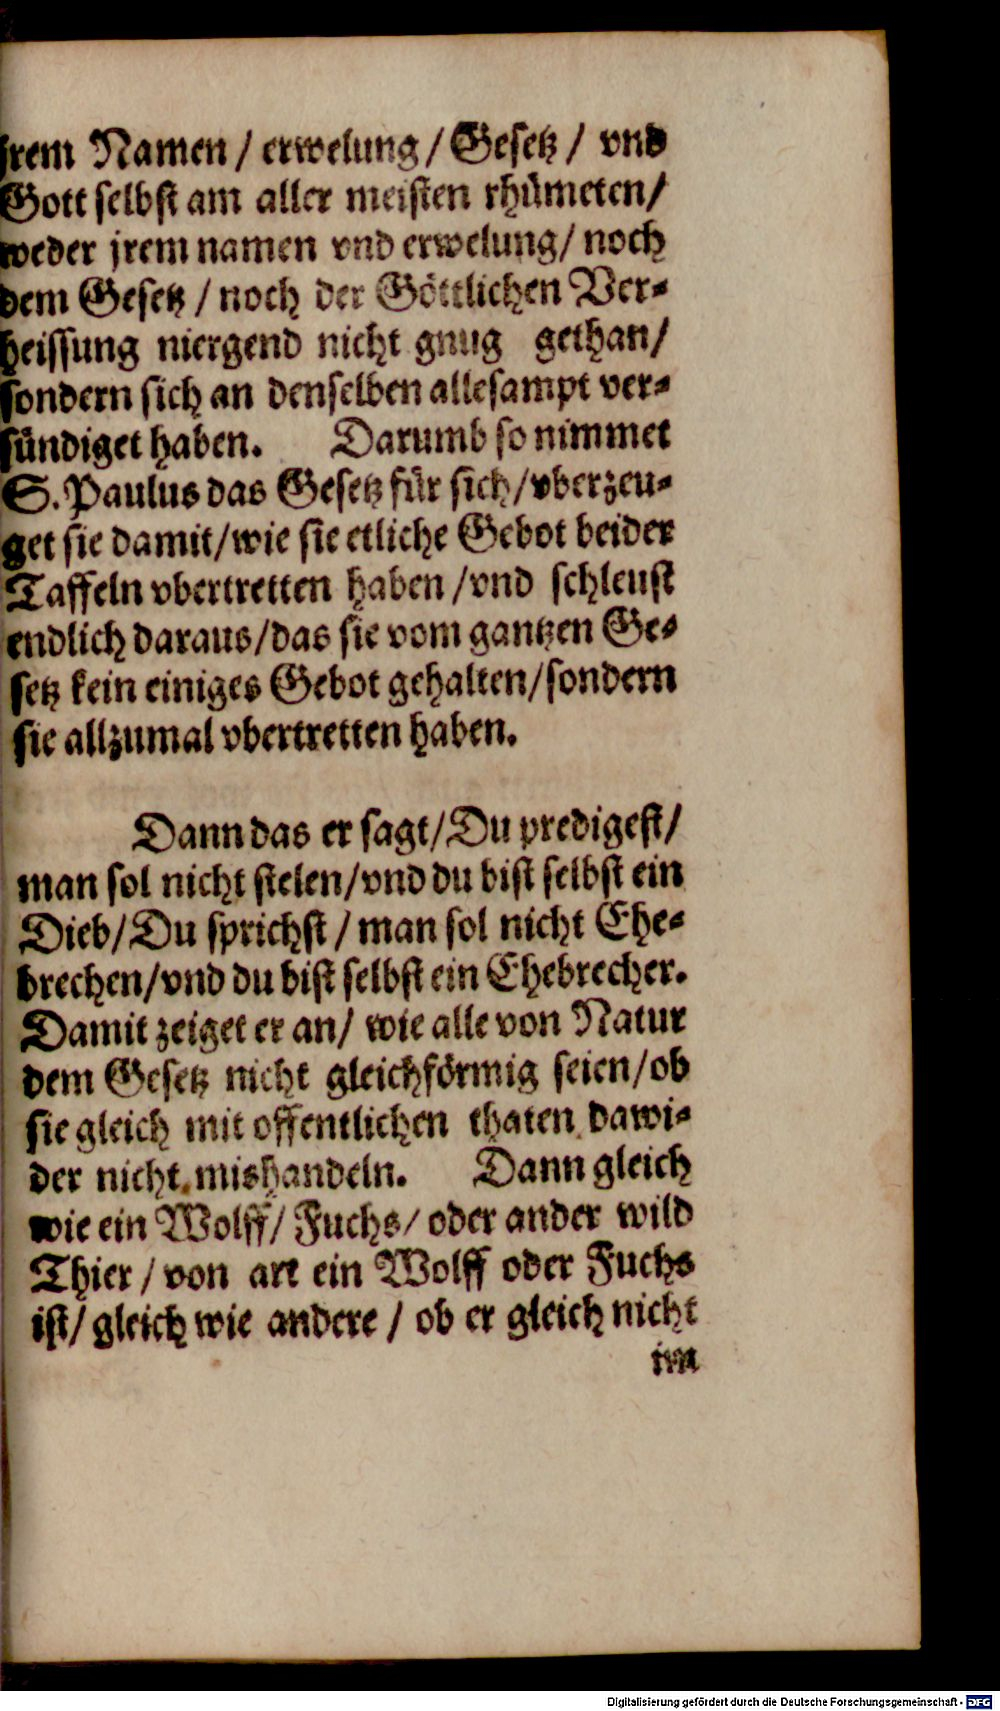 jrem Namen / erwelung / Gesetz / vnd
Gott selbst am aller meisten rhümeten/
weder jrem namen vnd erwelung/ noch
dem Gesetz / noch der Göttlichen Ver-
heissung niergend nicht gnug gethan/
sondern sich an denselben allesampt ver-
sündiget haben. Darumb so nimmet
S. Paulus das Gesetz für sich/vberzeu-
get sie damit/wie sie etliche Gebot beider
Taffeln vbertretten haben /vnd schleust
endlich daraus/das sie vom gantzen Ge-
setz kein einiges Gebot gehalten/sondern
sie allzumal vbertretten haben.
Dann das er sagt/Du predigest/
man sol nicht stelen/vnd du bist selbst ein
Dieb/Du sprichst / man sol nicht Ehe-
brechen/vnd du bist selbst ein Ehebrecher.
Damit zeiget er an/ wie alle von Natur
dem Gesetz nicht gleichförmig seien/ob
sie gleich mit offentlichen thaten dawi-
der nicht mishandeln. Dann gleich
wie ein Wolff/ Fuchs/ oder ander wild
Thier / von art ein Wolff oder Fuchs
ist/ gleich wie andere / ob er gleich nicht
im
Digitalisierung gefördert durch die Deutsche Forschungsgemeinschaft - DFG